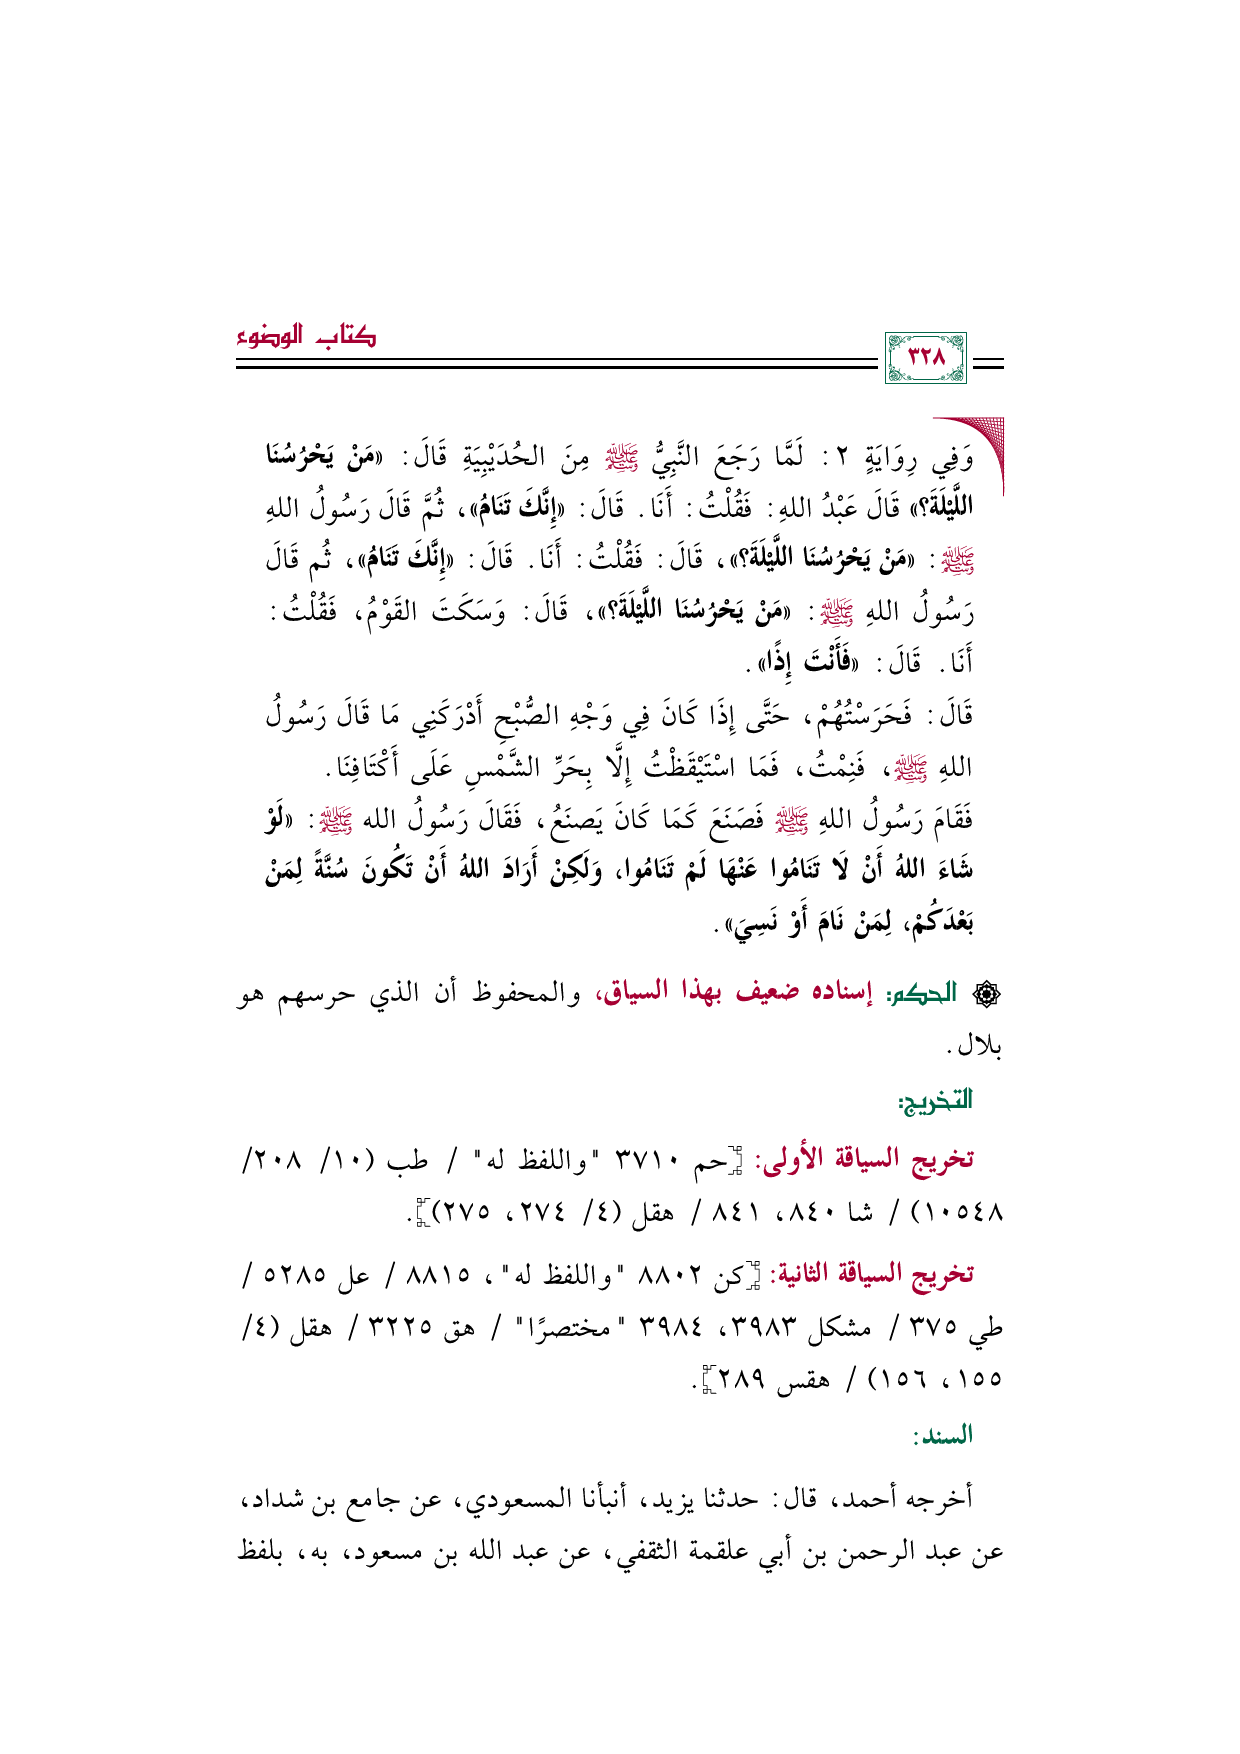 كتاب الوضوء
٣٢٨
وَفِي رِوَايَةٍ ٢: لَمَّا رَجَعَ النَّبِيُّ ﷺ مِنَ الحُدَيْبِيَةِ قَالَ: «مَنْ يَحْرُسُنَا
اللَّيْلَةَ؟» قَالَ عَبْدُ اللهِ: فَقُلْتُ: أَنَا. قَالَ: «إِنَّكَ تَنَامُ»، ثُمَّ قَالَ رَسُولُ اللهِ
ﷺ: «مَنْ يَحْرُسُنَا اللَّيْلَةَ؟»، قَالَ: فَقُلْتُ: أَنَا. قَالَ: «إِنَّكَ تَنَامُ»، ثُم قَالَ
رَسُولُ اللهِ ﷺ: «مَنْ يَحْرُسُنَا اللَّيْلَةَ؟»، قَالَ: وَسَكَتَ القَوْمُ، فَقُلْتُ:
أَنَا. قَالَ: «فَأَنْتَ إِذًا».
قَالَ: فَحَرَسْتُهُمْ، حَتَّى إِذَا كَانَ فِي وَجْهِ الصُّبْحِ أَدْرَكَنِي مَا قَالَ رَسُولُ
اللهِ ﷺ، فَنِمْتُ، فَمَا اسْتَيْقَظْتُ إِلَّا بِحَرِّ الشَّمْسِ عَلَى أَكْتَافِنَا.
فَقَامَ رَسُولُ اللهِ ﷺ فَصَنَعَ كَمَا كَانَ يَصنَعُ، فَقَالَ رَسُولُ الله ﷺ: «لَوْ
شَاءَ اللهُ أَنْ لَا تَنَامُوا عَنْهَا لَمْ تَنَامُوا، وَلَكِنْ أَرَادَ اللهُ أَنْ تَكُونَ سُنَّةً لِمَنْ
بَعْدَكُمْ، لِمَنْ نَامَ أَوْ نَسِيَ».
الحكم: إسناده ضعيف بهذا السياق، والمحفوظ أن الذي حرسهم هو
بلال.
التخريج:
تخريج السياقة الأولى: [حم ٣٧١٠ "واللفظ له" / طب (١٠/ ٢٠٨/
١٠٥٤٨) / شا ٨٤٠، ٨٤١ / هقل (٤/ ٢٧٤، ٢٧٥)].
تخريج السياقة الثانية: [كن ٨٨٠٢ "واللفظ له"، ٨٨١٥ / عل ٥٢٨٥ /
طي ٣٧٥ / مشكل ٣٩٨٣، ٣٩٨٤ "مختصرًا" / هق ٣٢٢٥ / هقل (٤/
١٥٥، ١٥٦) / هقس ٢٨٩].
السند:
أخرجه أحمد، قال: حدثنا يزيد، أنبأنا المسعودي، عن جامع بن شداد،
عن عبد الرحمن بن أبي علقمة الثقفي، عن عبد الله بن مسعود، به، بلفظ